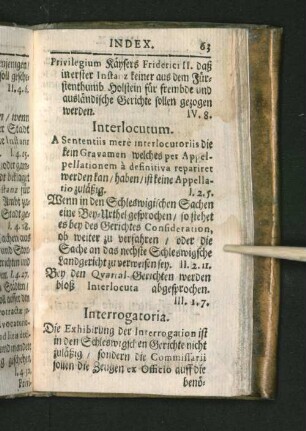 INDEX. 63
Privilegium Käysers Friderici II. daß
in erster Instanz keiner aus dem Für-
stenthumb Holstein für frembde und
ausländische Gerichte sollen gezogen
werden. IV. 8.
Interlocutum.
A Sententiis merè interlocutoriis die
kein Gravamen welches per Appel-
pellationem à definitiva repariret
werden kan / haben / ist keine Appella-
tio zuläßig. I. 2. 5.
Wenn in den Schleswigischen Sachen
eine Bey-Urthel gesprochen / so stehet
es bey des Gerichtes Consideration,
ob weiter zu verfahren / oder die
Sache an das nechste Schleswigsche
Landgericht zu verweisen sey. II. 2. 11.
Bey den Quartal-Gerichten werden
bloß Interlocuta abgesprochen.
III. 1. 7.
Interrogatoria.
Die Exhibirung der Interrogation ist
in den Schleswigschen Gerichte nicht
zuläßig / sondern die Commissarii
sollen die Zeugen ex Officio auff die
benö-